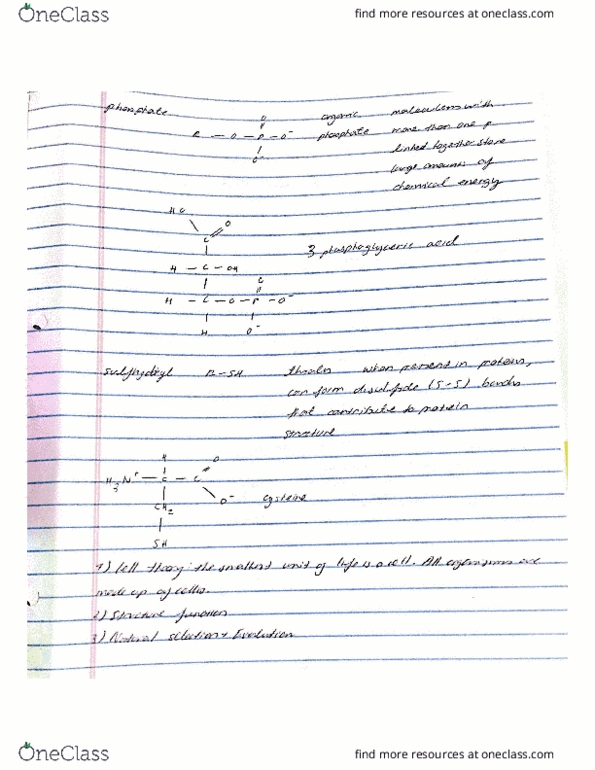 OneClass find more resources at oneclass.com
phosphate organic molecules with
R - O - P - O⁻ phosphate more than one p
O⁻ linked together store
large amounts of
chemical energy
H O
C
H - C - OH 3 phosphoglyceric acid
H - C - O - P - O⁻
H O⁻
sulfhydryl R-SH thiols when present in proteins,
can form disulfide (S-S) bonds
that contribute to protein
structure
H O
H₃N⁺ - C - C
O⁻ cysteine
CH₂
SH
1) Cell theory: the smallest unit of life is a cell. All organisms are
made up of cells.
2) Structure function
3) Natural selection + Evolution
OneClass find more resources at oneclass.com